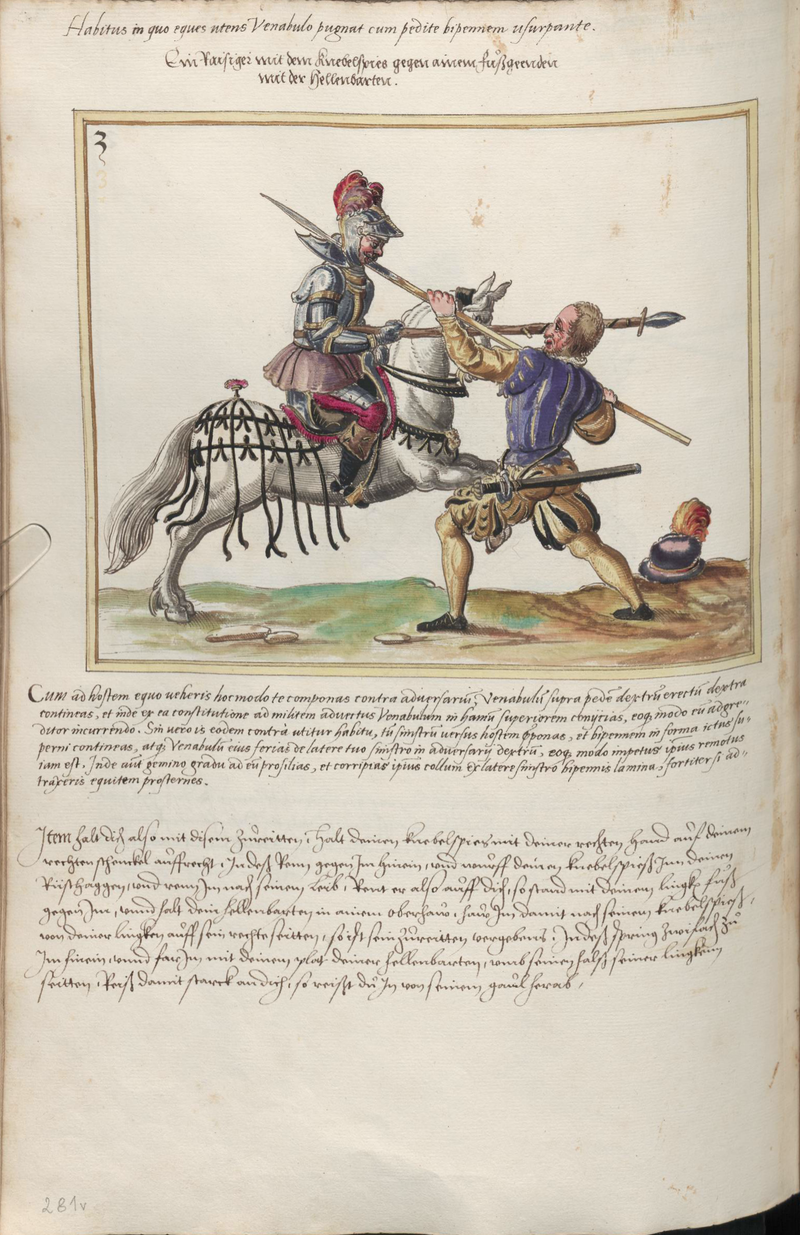 Habitus in quo eques utens Venabulo pugnat cum pedite bipennem usurpante.
Ein Raisiger mit dem Knebelspies gegen ainem fuͦßgeenden
mit der Hellenbarten.
3
Cum ad hostem equo veheris hoc modo te componas contra adversariū, Venabulū supra pedē dextrū erectū dextra
contineas, et inde ex ea constitutione ad militem advectus Venabulum in hamū superiorem conijcias, eoq; modo eū adgre-
ditor incurrendo. Sin vero is eodem contrà utitur habitu, tu sinistrū versus hostem ponas, et bipennem in forma ictus su-
perni contineas, atq; Venabulū eius ferias de latere tuo sinistro in adversarij dextrū, eoq; modo impetus ipsius remotus
iam est. Inde aūt gemino gradu ad eū prosilias, et corripias ipsius collum ex latere sinistro bipennis lamina, fortiter si ad-
traxeris equitem prosternes.
Item halt dich also mit disem zuͦreitten, halt deinen knebelspies mit deiner rechten hand auf deinem
rechten schenckel auffrecht, Indeß Renn gegen Im hinein, und wurff deinen knebelspieß Inn deinen
Risthaggen, und renn Im nach seinem Leib, Rent er also auff dich, so stand mit deinem lingken fuͦß
gegen Im, unnd halt dein hellenbarten in ainem oberhaw, haw Im damit nach seinem knebelspieß,
von deiner lingken auff sein rechte seitten, so ist sein zuͦreitten vergebens, Indeß spring zwifach zuͦ
Im hinein, unnd far Im mit deinem plat deiner hellenbarten, umb seinen halß seiner lingken
seitten, Reiß damit starck an dich, so reißt du In von seinem gaul herab,
281v